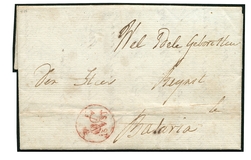 Wel Edele Gebooren
Den Heer Meynot
à
Batavia